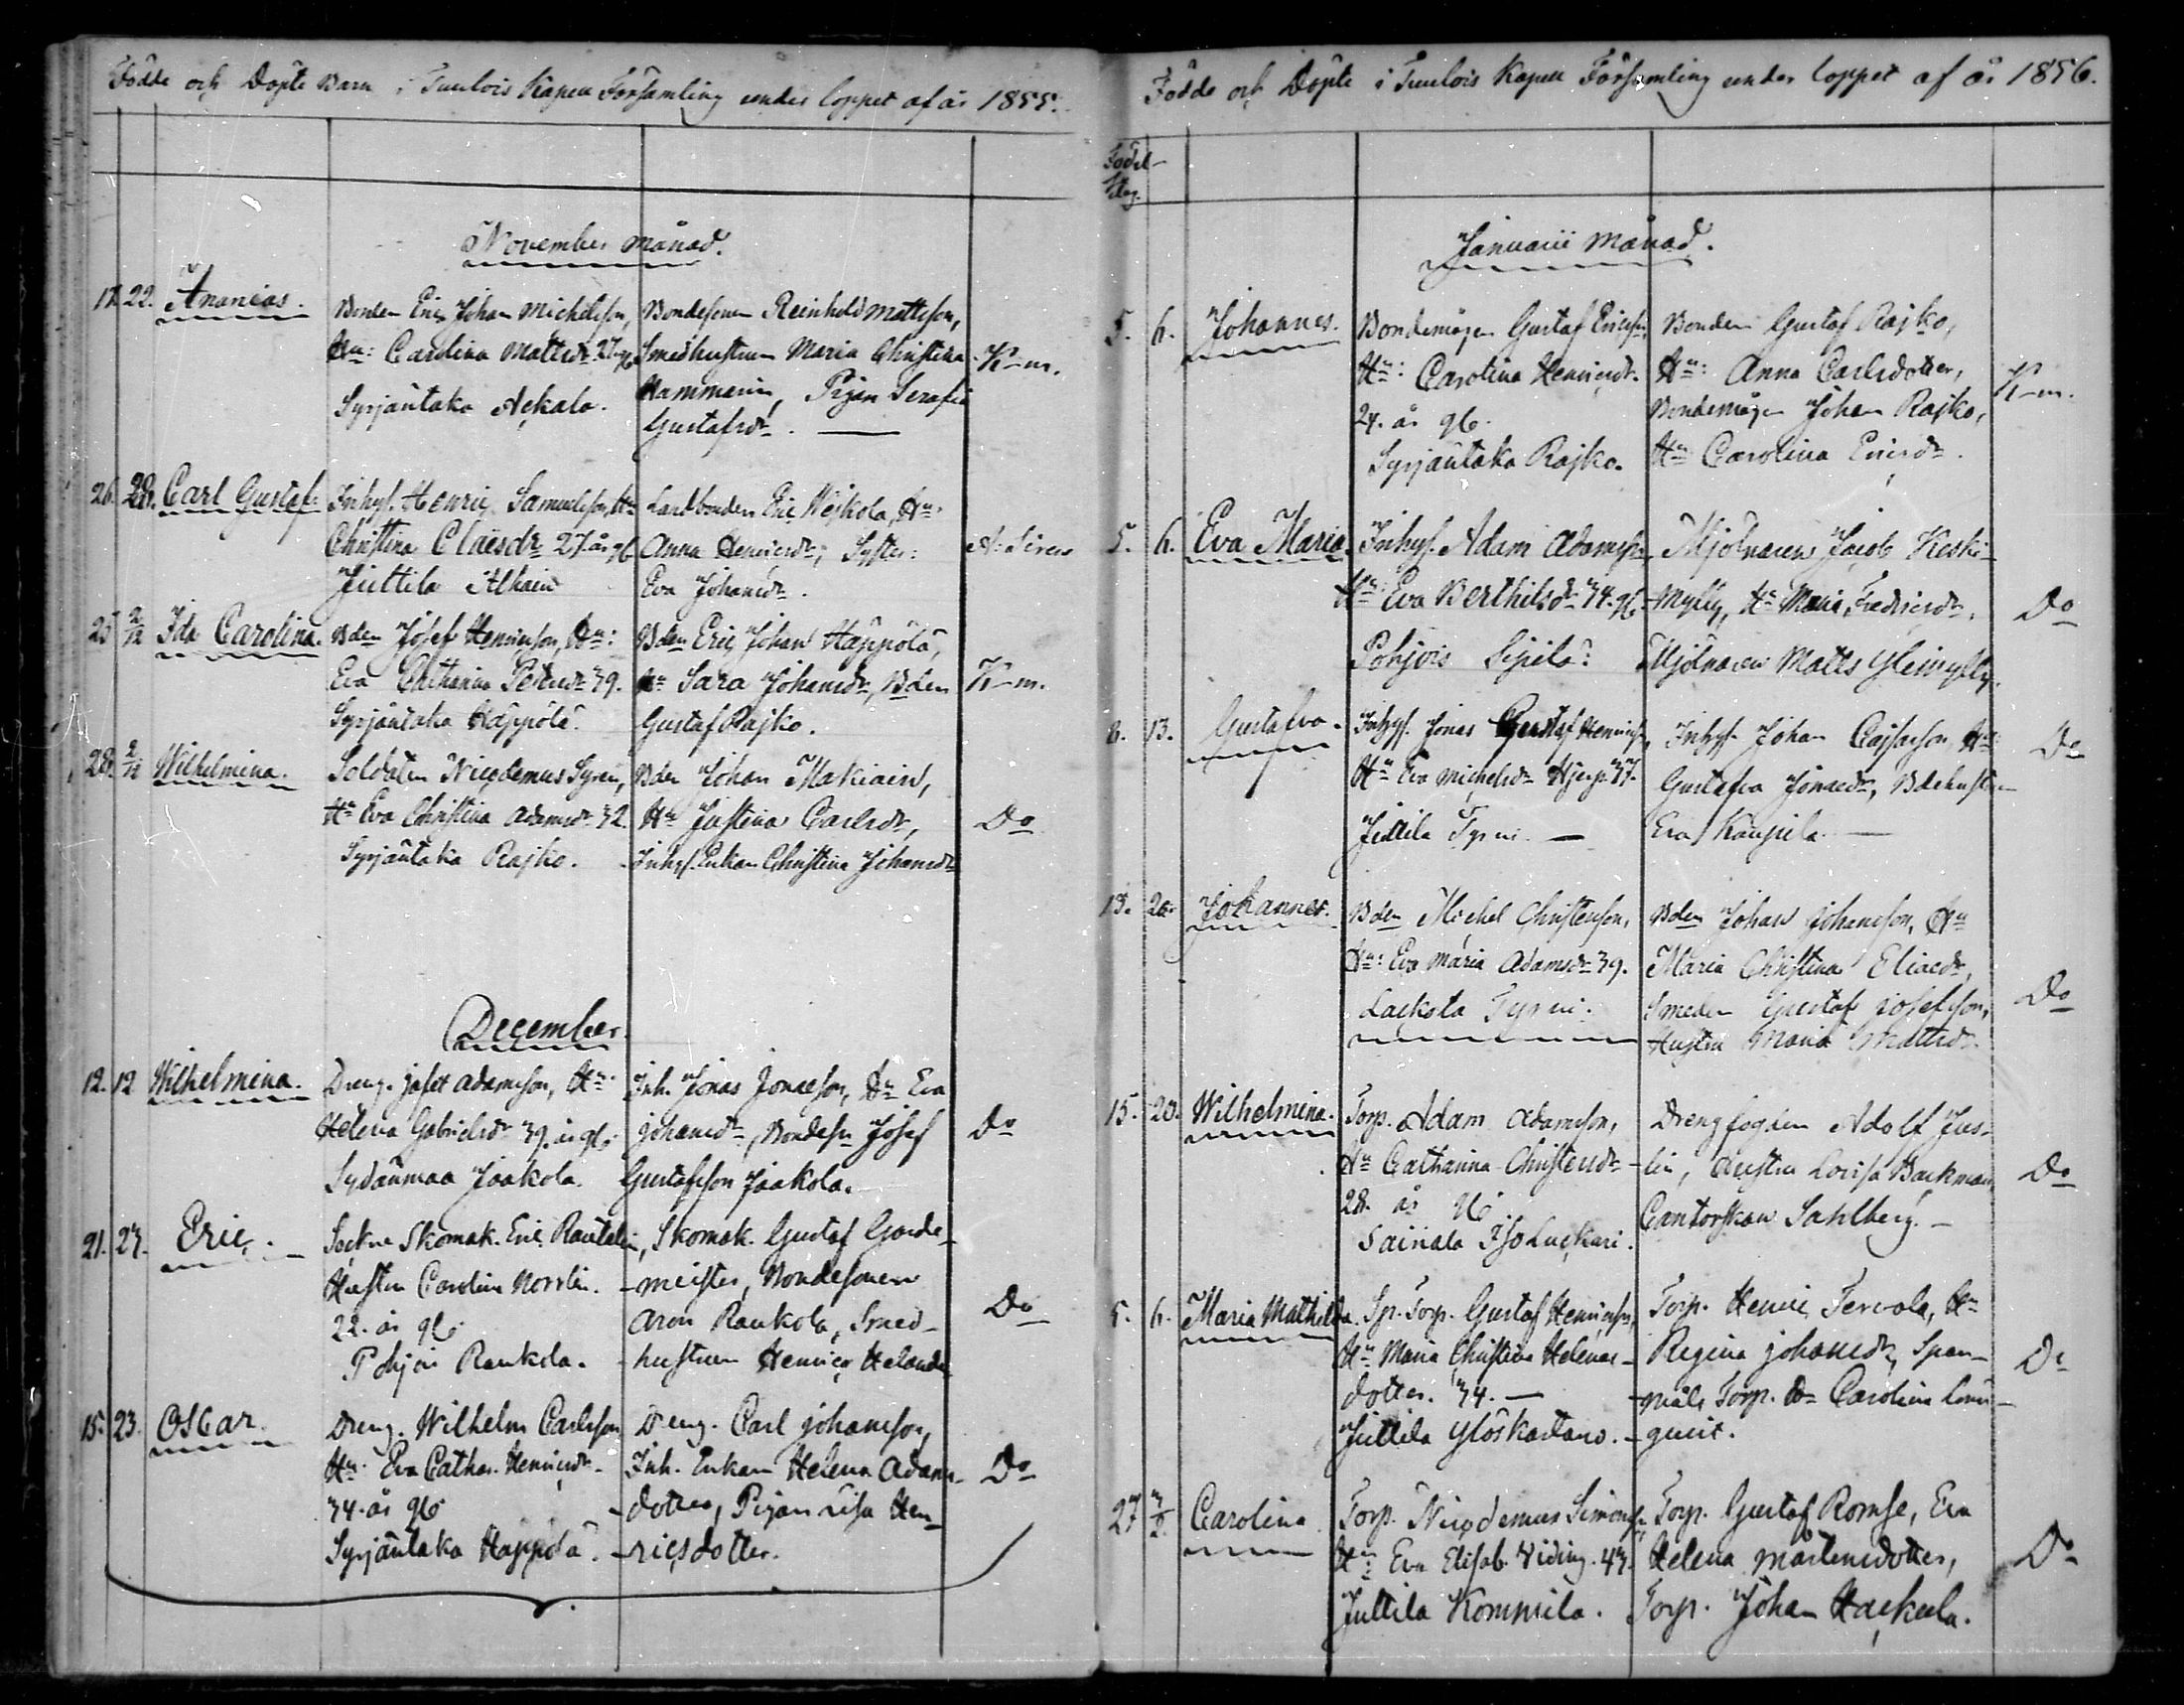 Födde och Döpte Barn i Tuulois Kapell Församling under loppet af år 1855.
November månad.
17. 22. Ananias.
Bonden Eric Johan Michelsson,
Hu: Carolina Mattsdr 27. gb
Syrjäntaka Ackala.
Bondesonen Reinhold Mattsson,
Smedhustrun Maria Christina
Hammarin, Pigan Serafia
Gustafsdr.
K-m.
26. 28. Carl Gustaf
Inhys. Henric Samuelsson, Hu
Christina Claësdr 27. år gb
Juttila Alhain
Landbonden Eric Wejkola, Hu:
Anna Henricsdr; Syster:
Eva Johansdr.
A. Siren
25 2/12 Ida Carolina.
Bden Josef Henricsson, Hu:
Eva Catharina Petersdr 39.
Syrjäntaka Häppölä.
Bden Eric Johan Häppölä,
Hu Sara Johansdr, Bden
Gustaf Rajko.
K-m.
28. 2/12 Wilhelmina.
Soldaten Nicodemus Syren,
Hu Eva Christina Adamsdr 32.
Syrjäntaka Rajko.
Bden Johan Makiain,
Hu Justina Carlsdr,
Inhys. Enkan Christina Johansdr
Do
December.
12. 12 Wilhelmina.
Dreng. Josef Adamsson, Hu
Helena Gabrielsdr 39. år gb.
Sydänmaa Jaakola.
Inh. Jonas Jonasson, Hu Eva
Johansdr, Bondesn Josef
Gustafsson Jaakola.
Do
21. 27. Eric.
Sockne Skomak. Eric Rautelin,
Hustru Carolina Norrlin.
22. år gb.
Pohjois Raukola.
Skomak. Gustaf Garde-
meister, Bondesonen
Aron Raukola, Smed-
hustrun Henrica Helander
Do
15. 23. Oscar.
Dreng. Wilhelm Carlsson
Hu: Eva Cathar. Henricsdr.
34. år gb
Syrjäntaka Häppölä.
Dreng. Carl Johansson,
Inh. Enkan Helena Adams-
dotter, Pigan Lisa Hen-
ricsdotter.
Do
Födde och Döpte i Tuulois Kapell Församling under loppet af år 1856.
Födel-
dag.
Januarii månad.
5. 6. Johannes.
Bondemågen Gustaf Ericsson,
Hu: Carolina Henricsdr.
24. år gb.
Syrjäntaka Rajko.
Bonden Gustaf Rajko,
Hu: Anna Carlsdotter,
Bondemågen Johan Rajko,
Hu Carolina Ericsdr.
K-m.
5. 6. Eva Maria.
Inhys. Adam Adamsson,
Hu: Eva Berthilsdr 34. gb.
Pohjois Sipilä.
Mjölnaren Jacob Keski-
mylly, Hu Maria Fredricsdr,
Mjölnaren Matts Ylimylly.
Do
8. 13. Gustafva.
Inhys. Jonas Gustaf Henricss,
Hu Eva Michelsdr Hjerp 37.
Juttila Tyrni.
Inhys. Johan Cajsasson, Hu:
Gustafva Jonasdr, Bdehustrun
Eva Kaupila.
Do
13. 20. Johannes.
Bden Michel Christersson,
Hu: Eva Maria Adamsdr 39.
Laekola Tyrni.
Bden Johan Johansson, Hu
Maria Christina Eliaedr,
Smeden Gustaf Josefsson,
Hustru Maria Mattsdr.
Do
15. 20. Wilhelmina.
Torp. Adam Adamsson,
Hu Catharina Christersdr
28. år gb
Sairiala Iso Luckari.
Drengfogden Adolf Jus-
lin, Hustru Lovisa Backman,
Cantorskan Sahlberg.
Do
5. 6. Maria Mathilda.
Sp. Torp. Gustaf Henricsson,
Hu Maria Christina Helenas-
dotter. 34.
Juttila Ylöskartano.
Torp. Henric Tervola, Hu
Regina Johansdr, Span-
måls Torp. Do Carolina Lönn-
quist.
Do
27 3/2. Carolina
Torp. Nicodemus Simonss,
Hu: Eva Elisab. Widing. 43.
Juttila Komppila.
Torp. Gustaf Romse, Eva
Helena Mårtensdotter,
Torp. Johan Hackula.
Do